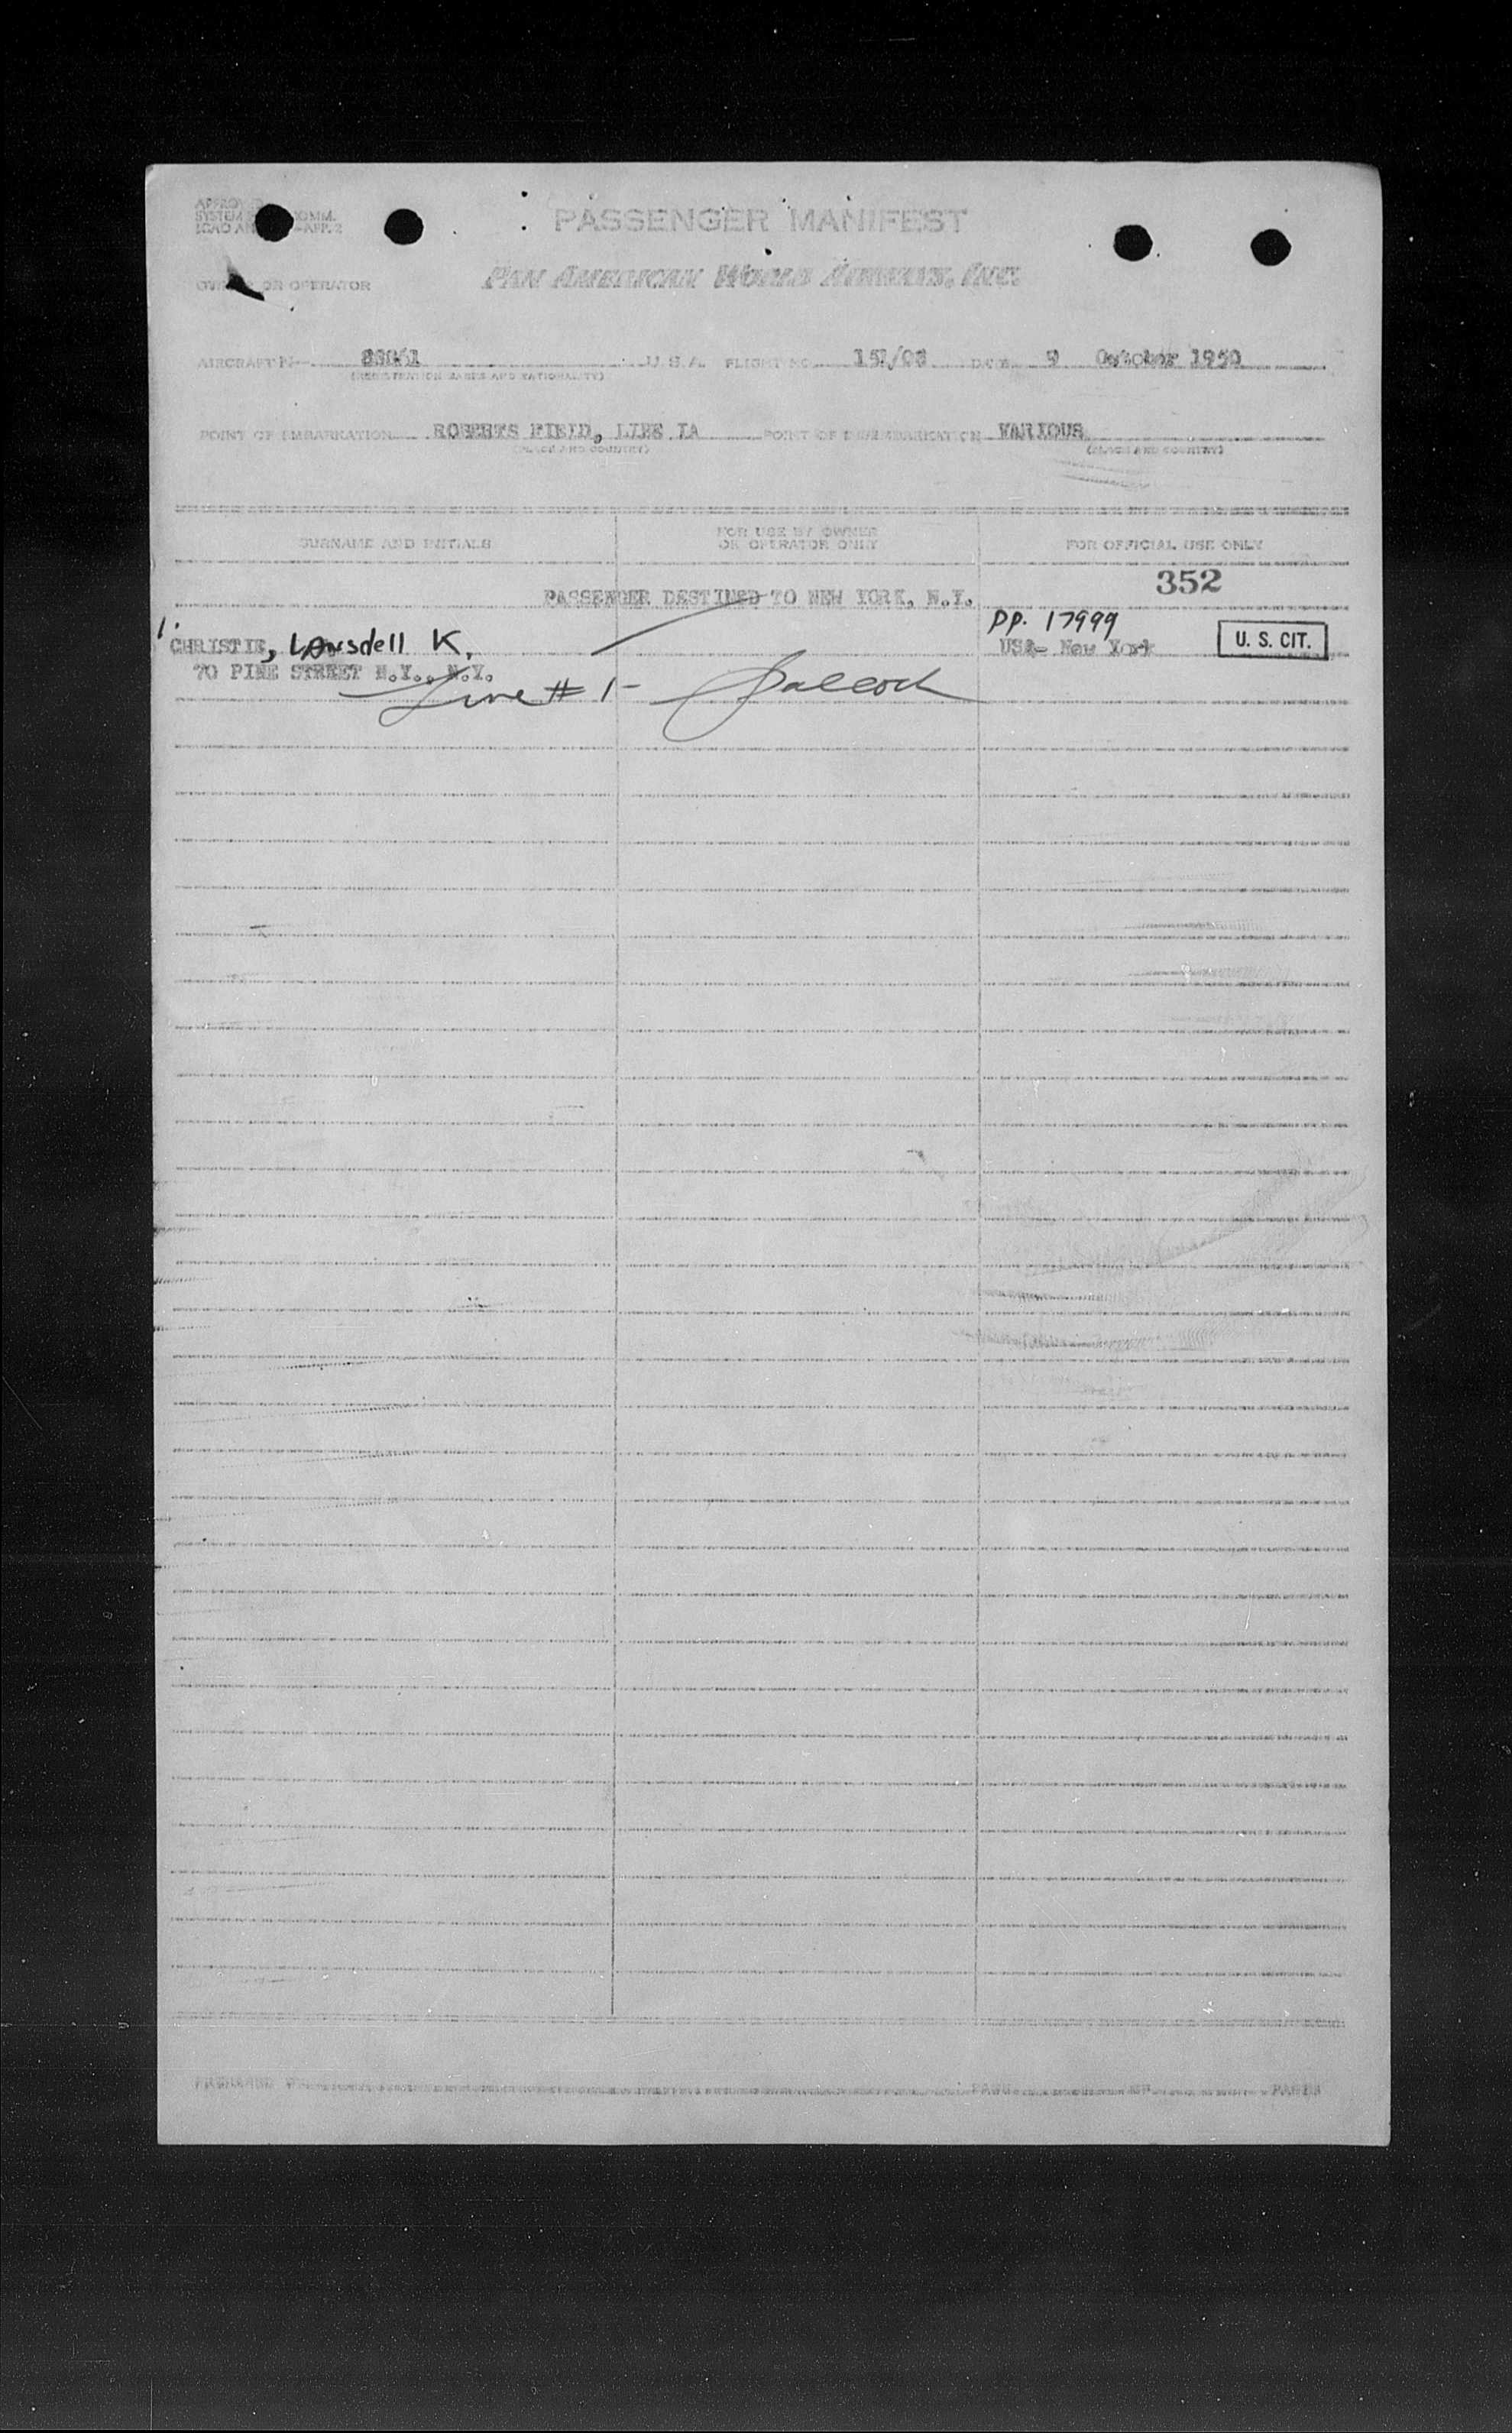 PASSENGER MANIFEST
PAN AMERICAN WORLD AIRWAYS, INC.
OR OPERATOR
AIRCRAFT N— 88861 U.S.A. FLIGHT NO. 151/08 DATE 9 October 1950
(REGISTRATION MARKS AND NATIONALITY)
POINT OF EMBARKATION ROBERTS FIELD, LIBE IA POINT OF DISEMBARKATION VARIOUS
(PLACE AND COUNTRY) (PLACE AND COUNTRY)
SURNAME AND INITIALS FOR USE BY OWNER OR OPERATOR ONLY FOR OFFICIAL USE ONLY
352
PASSENGER DESTINED TO NEW YORK, N.Y.
1. CHRISTIE, Lansdell K. PP. 17999
USA- New York U. S. CIT.
70 PINE STREET N.Y., N.Y.
Line # 1 -
PREPARED BY PAGE OF PAGES